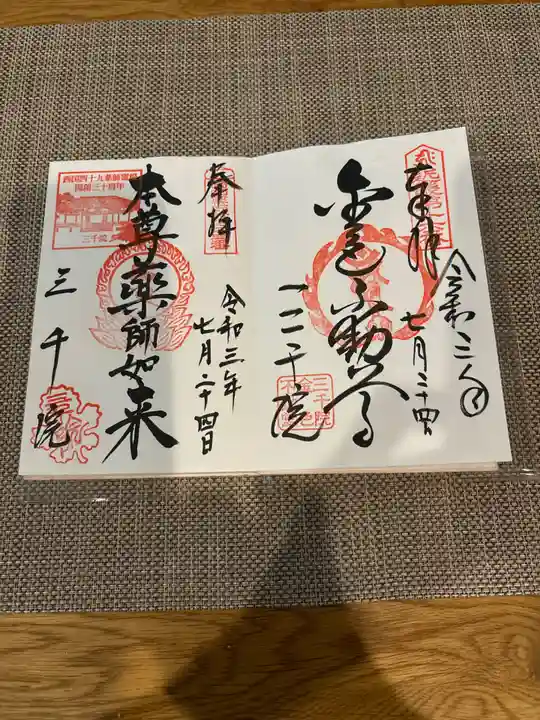 奉拝
令和三年
七月二十四日
金色不動尊
三千院
三千院
金色
不動
奉拝
令和三年
七月二十四日
本尊薬師如来
三千院
西国四十九薬師霊場
開創三十周年
三千院